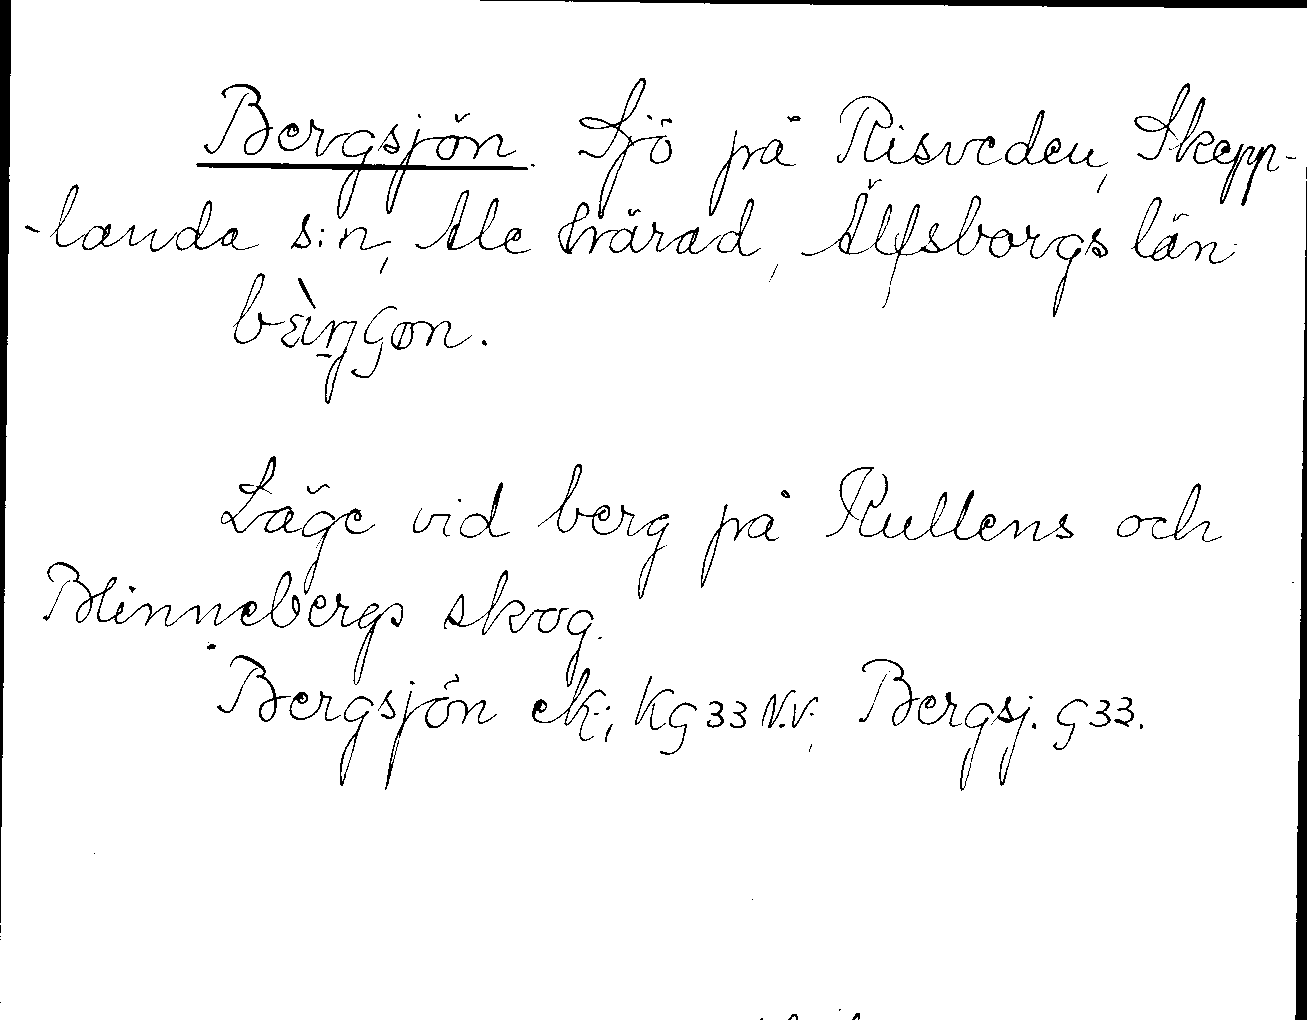 Bergsjön. Sjö på Risveden, Skepp-
-landa s:n, Ale härad, Älfsborgs län
Läge vid berg på Rullens och
Blinnebergs skog.
Bergsjön ek.; KG 33 N.V.; Bergsj. G 33.